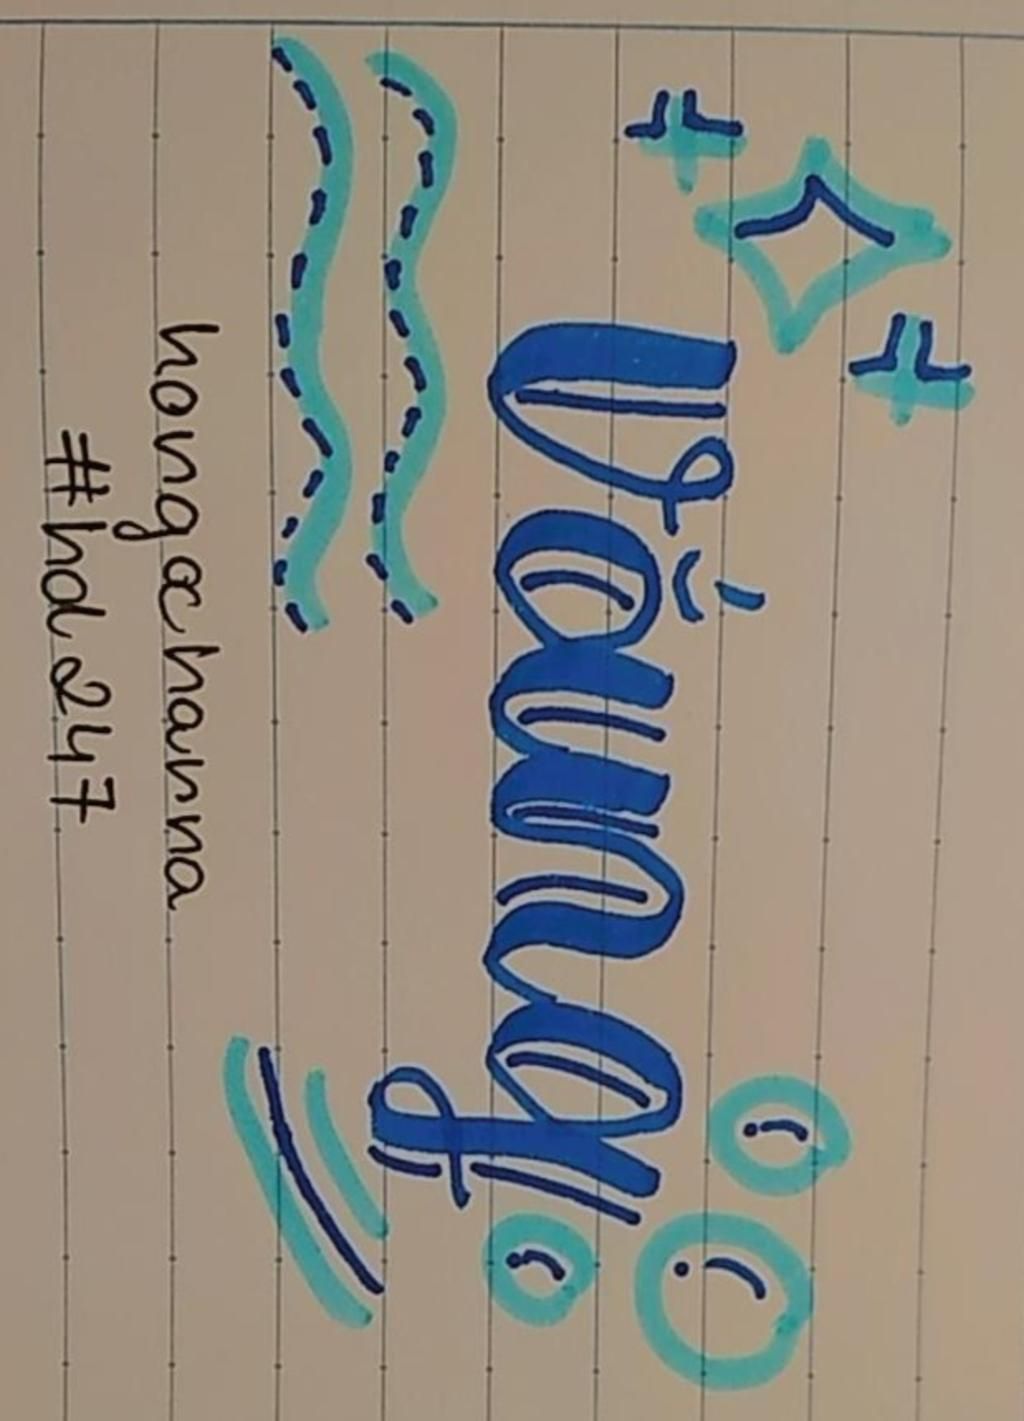 Vắng
hongochanna
#hd247